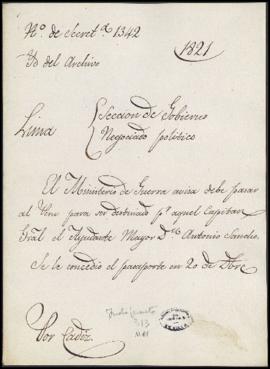 Nº de Secretª 1342
1821
Yd del Archivo
Lima
Seccion de Gobierno
Negociado politico
El Ministerio de Guerra avisa debe pasar
al Perú para ser destinado pr aquel Capitan
Gral el Ayudante Mayor Dn Antonio
Se le concedió el pasaporte en 20 de
Por Cadiz.
313